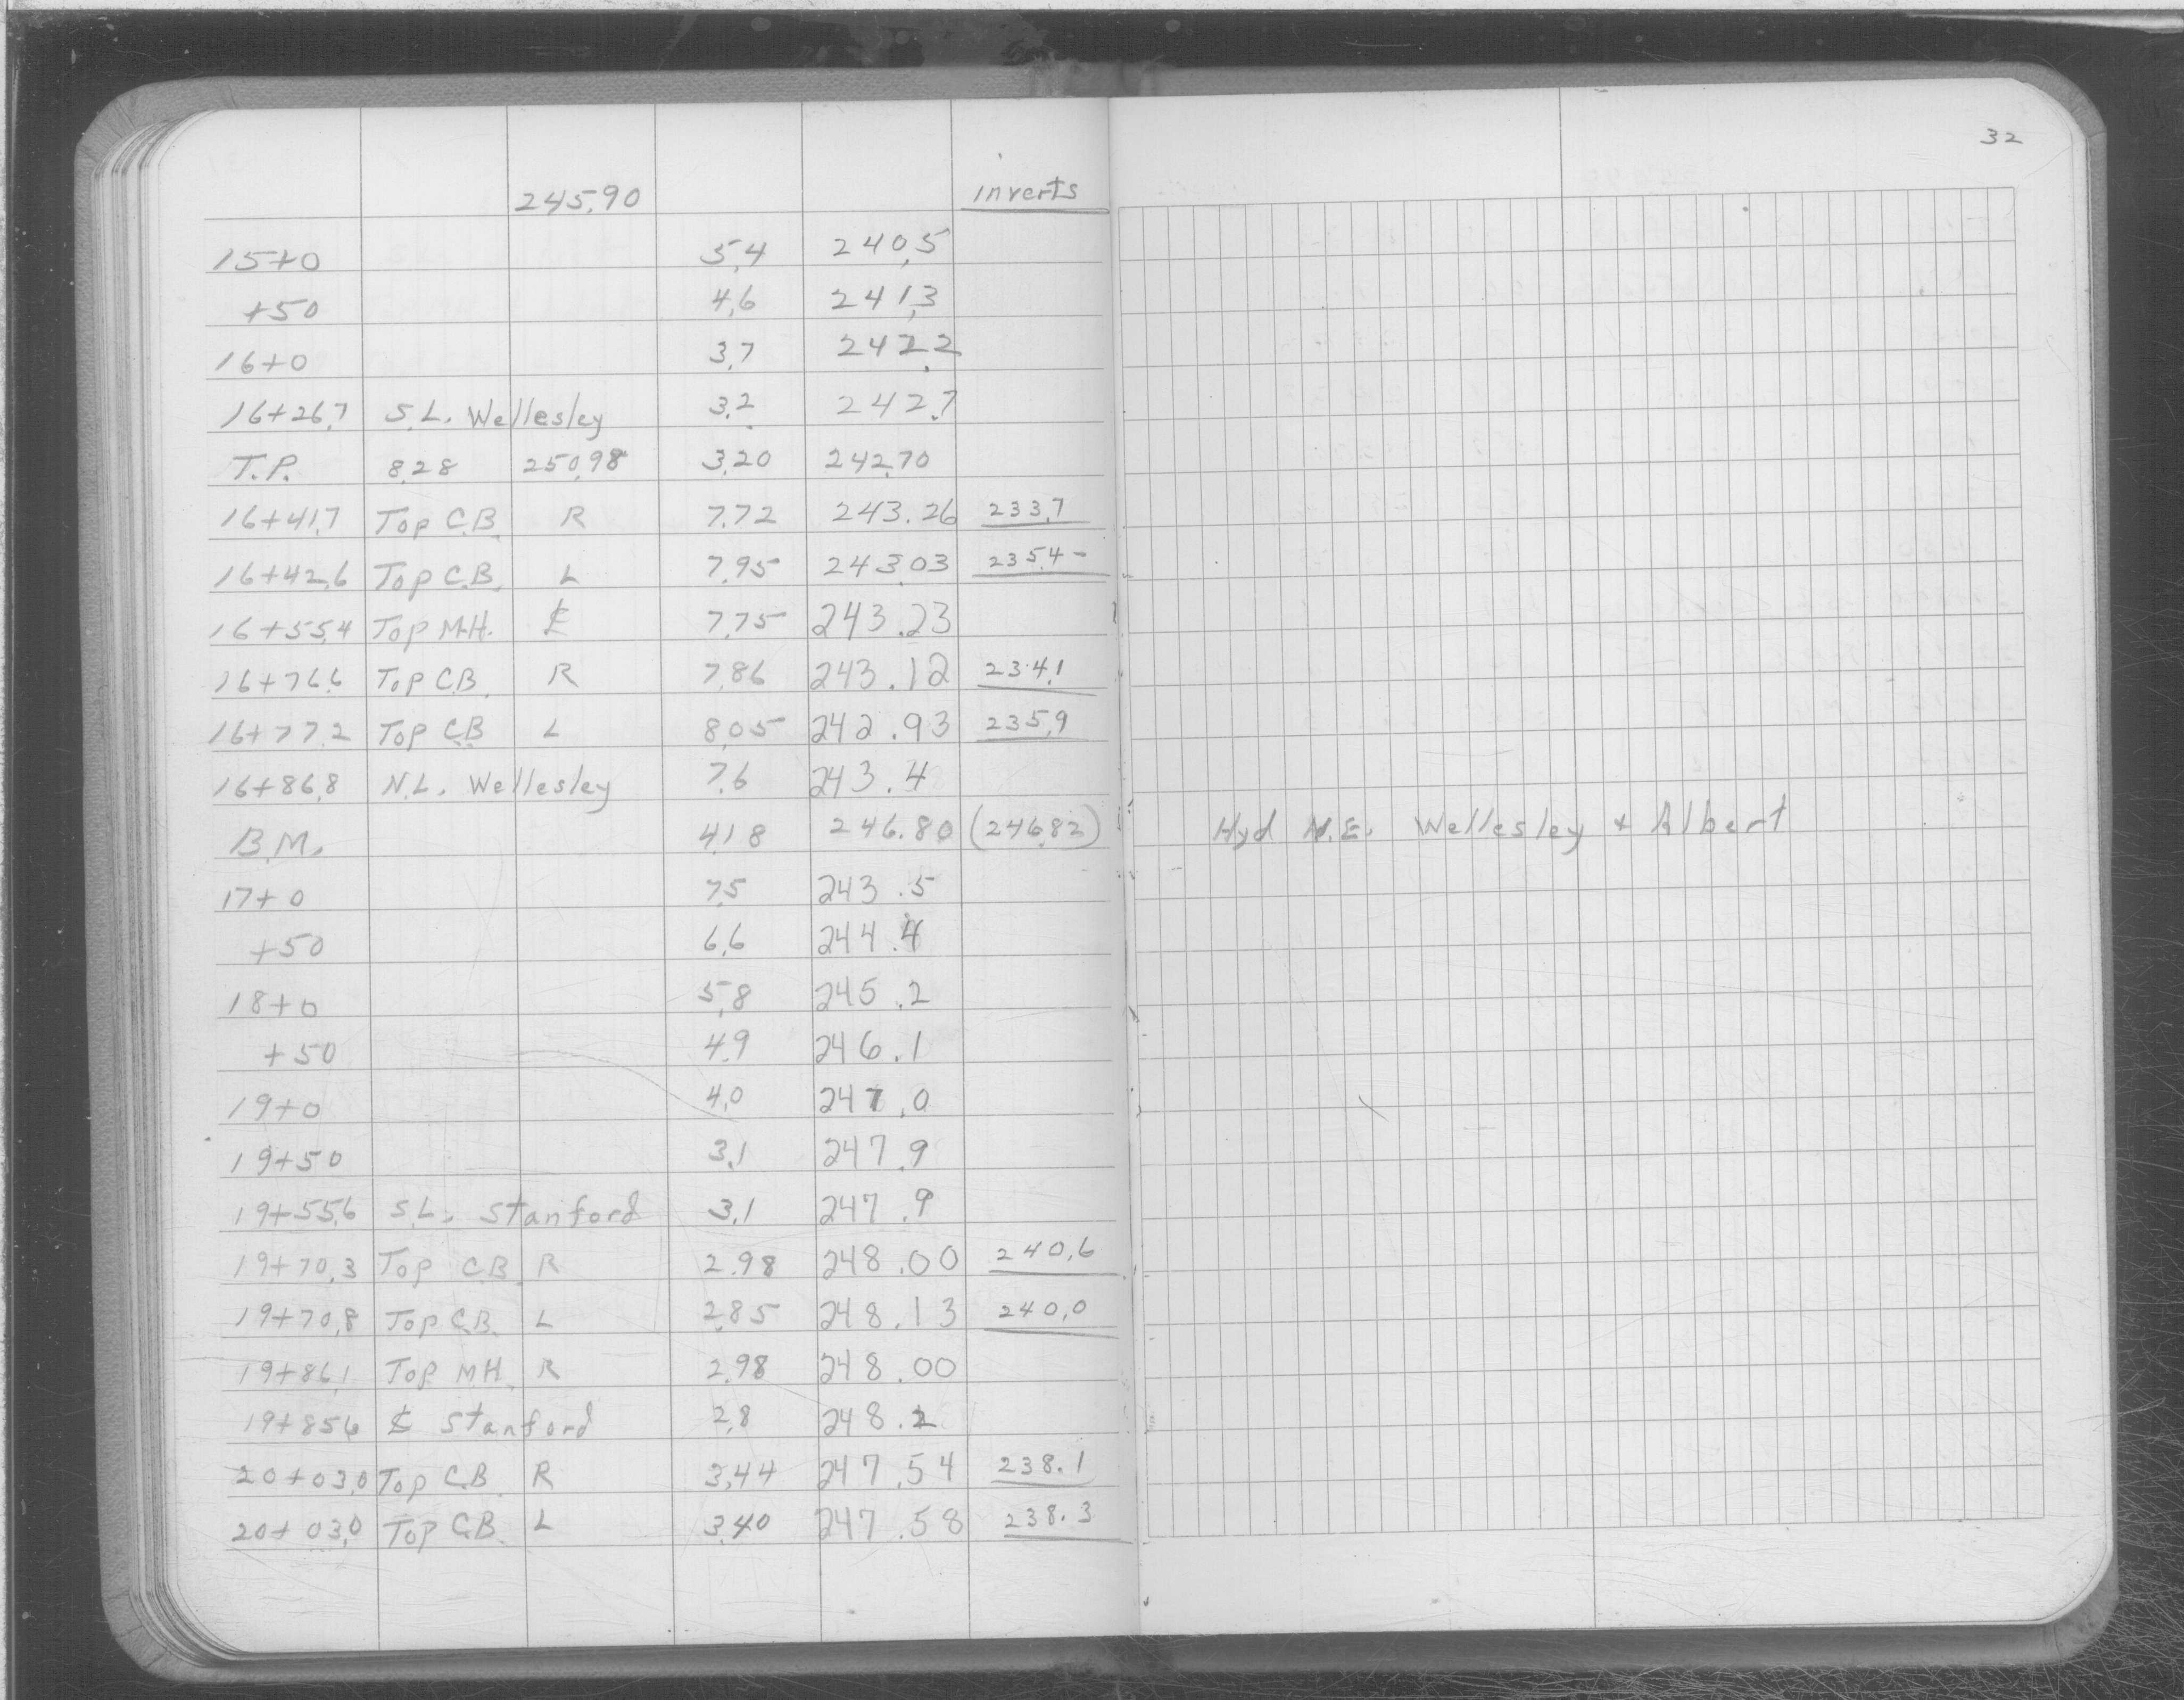 32
245.90 inverts
15+0 5.4 240.5
+50 4.6 241.3
16+0 3.7 242.2
16+26.7 S.L. Wellesley 3.2 242.7
T.P. 8.28 250.98 3.20 242.70
16+41.7 Top C.B. R 7.72 243.26 233.7
16+42.6 Top C.B. L 7.95 243.03 235.4-
16+55.4 Top M.H. ℄ 7.75 243.23
16+76.6 Top C.B. R 7.86 243.12 234.1
16+77.2 Top C.B L 8.05 242.93 235.9
16+86.8 N.L. Wellesley 7.6 243.4
B.M. 4.18 246.80 (246.82) Hyd N.E. Wellesley + Albert
17+0 7.5 243.5
+50 6.6 244.4
18+0 5.8 245.2
+50 4.9 246.1
19+0 4.0 247.0
19+50 3.1 247.9
19+55.6 S.L. Stanford 3.1 247.9
19+70.3 Top C.B. R 2.98 248.00 240.6
19+70.8 Top C.B. L 2.85 248.13 240.0
19+86.1 Top MH. R 2.98 248.00
19+85.6 ℄ Stanford 2.8 248.2
20+03.0 Top C.B. R 3.44 247.54 238.1
20+03.0 Top C.B. L 3.40 247.58 238.3